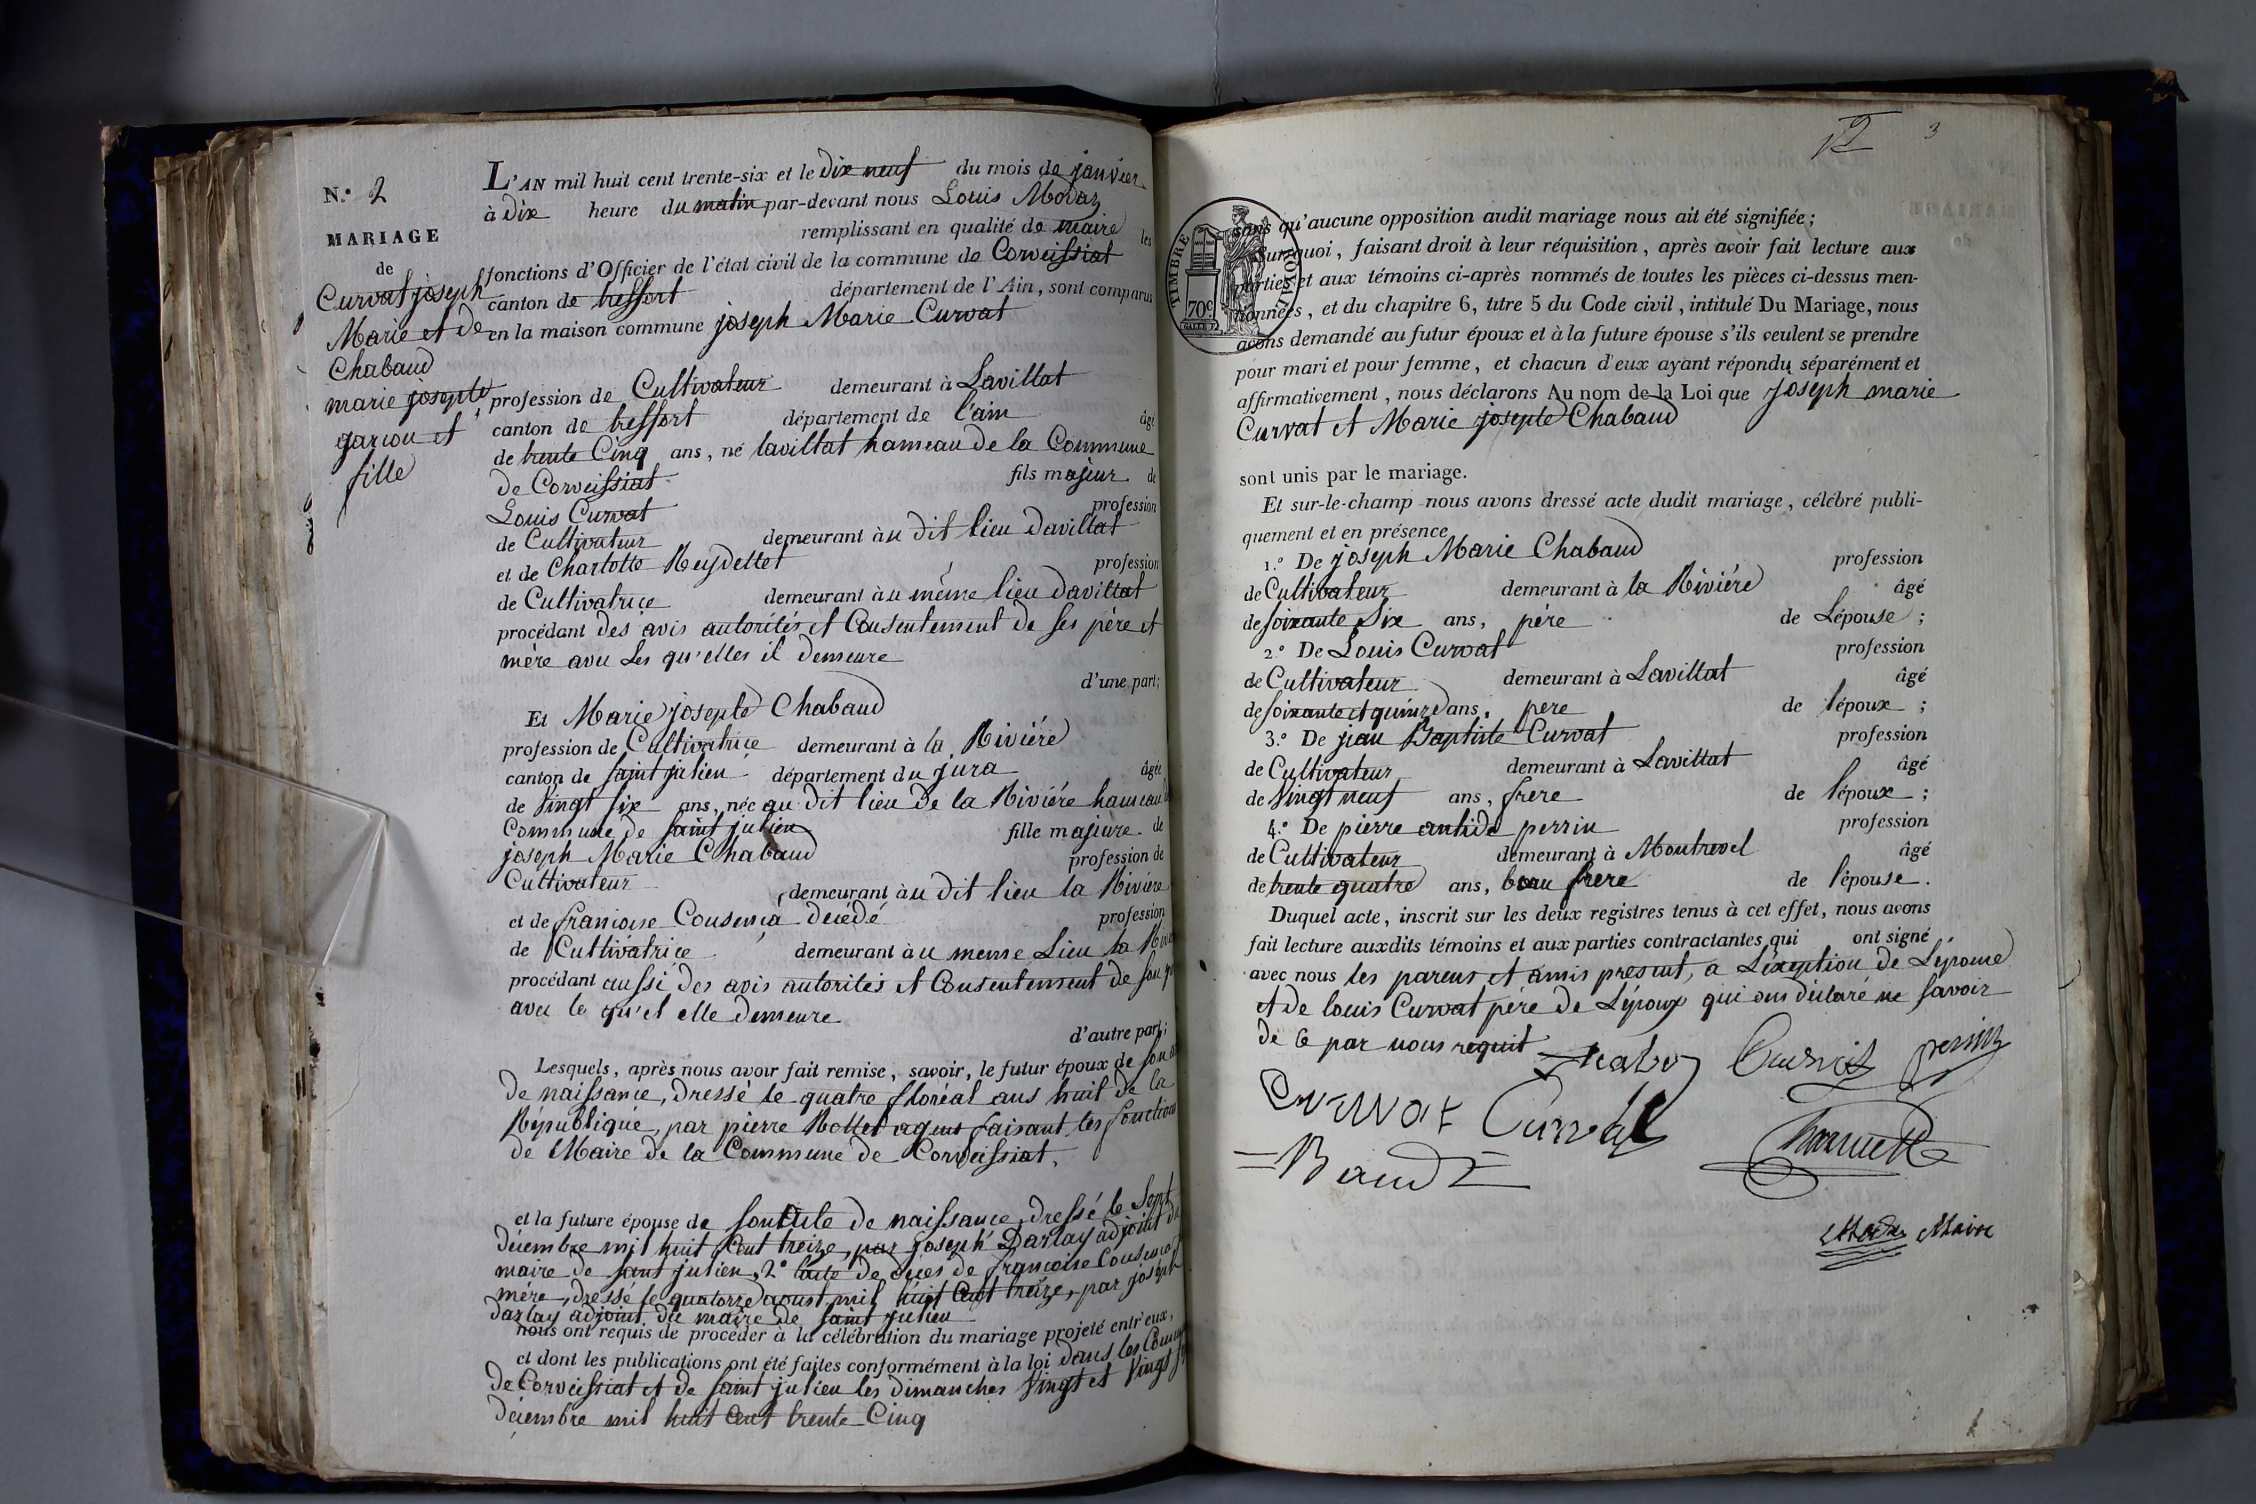 N.º 2
MARIAGE
de
Curvat joseph
Marie et de
Chabaud
marie josepte
garcon et
fille
L'AN mil huit cent trente-six et le dix neuf du mois de janvier
à dix heure du matin par-devant nous Louis Modaz
remplissant en qualité de maire les
fonctions d'Officier de l'état civil de la commune de Corveissiat
canton de treffort département de l'Ain, sont comparus
en la maison commune joseph Marie Curvat
profession de Cultivateur demeurant à Lavillat
canton de treffort département de l'ain âgé
de trente Cinq ans, né lavillat hameau de la Commune
de Corveissiat fils majeur de
Louis Curvat profession
de Cultivateur demeurant au dit lieu davillat
et de Charlotte Reydellet profession
de Cultivatrice demeurant au même lieu davillat
procédant des avis autorités et Consentement de ses père et
mère avec les qu'elles il demeure
d'une part;
Et Marie josepte Chabaud
profession de Cultivatrice demeurant à la Riviére
canton de saint julien département du jura âgée
de vingt six ans, née au dit lieu de la Riviére hameau
Commune de saint julien fille majeure de
joseph Marie Chabaud profession de
Cultivateur demeurant au dit lieu la Riviére
et de francoise Cousença décédé profession
de Cultivatrice demeurant au meme Lieu la
procédant aussi des avis autorités et Consentement de son
avec le qu'el elle demeure
d'autre part;
Lesquels, après nous avoir fait remise, savoir, le futur époux de son
de naissance, dressé le quatre floréal ans huit de la
République, par pierre Mollet agent faisant les fonctions
de Maire de la Commune de Corveissiat,
et la future épouse de son Acte de naissance, dressé le Sept
décembre mil huit Cent treize, par joseph Darlay adjoint du
maire de saint julien, 2º lacte de décés de francoise Cousença
mère, dressé le quatorze aoust mil huit Cent treize, par joseph
darlay adjoint du maire de saint julien
nous ont requis de procéder à la célébration du mariage projeté entr'eux,
et dont les publications ont été faites conformément à la loi dans les
de Corveissiat et de saint julien les dimanches vingt et vingt
décembre mil huit Cent trente Cinq
3
TIMBRE ROYAL
70c
sans qu'aucune opposition audit mariage nous ait été signifiée;
Sur quoi, faisant droit à leur réquisition, après avoir fait lecture aux
parties et aux témoins ci-après nommés de toutes les pièces ci-dessus men-
tionnées, et du chapitre 6, titre 5 du Code civil, intitulé Du Mariage, nous
avons demandé au futur époux et à la future épouse s'ils veulent se prendre
pour mari et pour femme, et chacun d'eux ayant répondu séparément et
affirmativement, nous déclarons Au nom de la Loi que Joseph marie
Curvat et Marie josepte Chabaud
sont unis par le mariage.
Et sur-le-champ nous avons dressé acte dudit mariage, célébré publi-
quement et en présence
1.º De joseph Marie Chabaud profession
de Cultivateur demeurant à la Riviére âgé
de soixante Six ans, père de Lépouse;
2.º De Louis Curvat profession
de Cultivateur demeurant à Lavillat âgé
de soixante et quinze ans, pere de lépoux;
3.º De jean Baptiste Curvat profession
de Cultivateur demeurant à Lavillat âgé
de vingt neuf ans, frere de lépoux;
4.º De pierre antide perrin profession
de Cultivateur demeurant à Montrevel âgé
de trente quatre ans, beau frere de lépouse.
Duquel acte, inscrit sur les deux registres tenus à cet effet, nous avons
fait lecture auxdits témoins et aux parties contractantes qui ont signé
avec nous les parens et amis present, a Léxeption de Lépouse
et de louis Curvat pére de Lépoux qui ons déclaré ne savoir
de ce par nous requit
perrin
Curvat Curvat
Maire